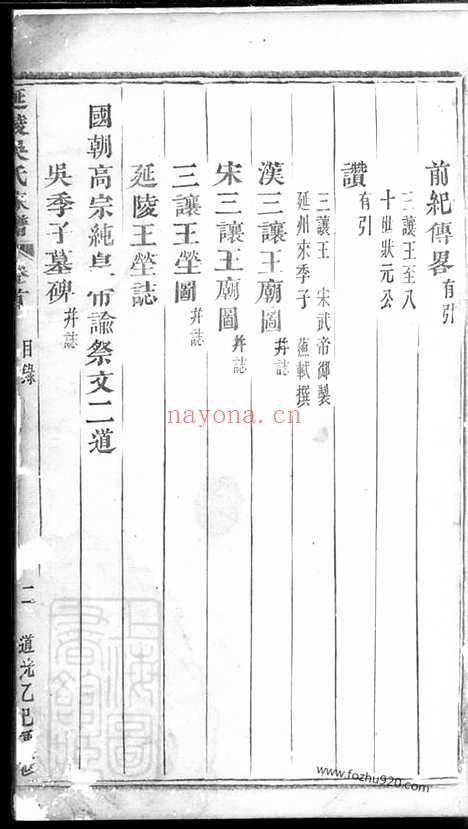 前紀傳畧有引
三讓王至八
十世狀元公
讚有引
三讓王 宋武帝御製
延州來季子 蘇軾撰
漢三讓王廟圖并誌
宋三讓王廟圖并誌
三讓王塋圖
延陵王塋誌
國朝高宗純皇帝諭祭文二道
吳季子墓碑并誌
延陵吳氏家譜 卷首 目錄 二 道光乙巳
nayona.cn
www.fozhu920.com